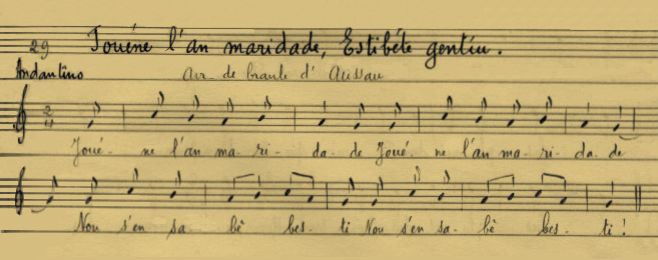 29 Jouéne l'an maridade, Estibéte gentiu.
Andantino air de branle d' Aussau
2/4
Joué- ne l'an ma- ri- da- de Joué- ne l'an ma- ri- da- de
Nou s'en sa- bè bes- ti Nou s'en sa- bè bes- ti!